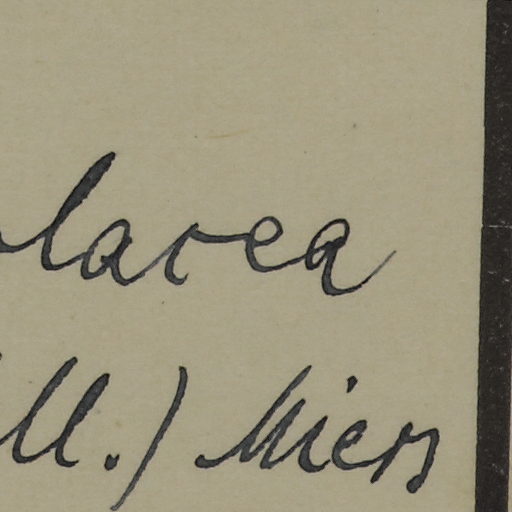 lacea
ll.) Miers